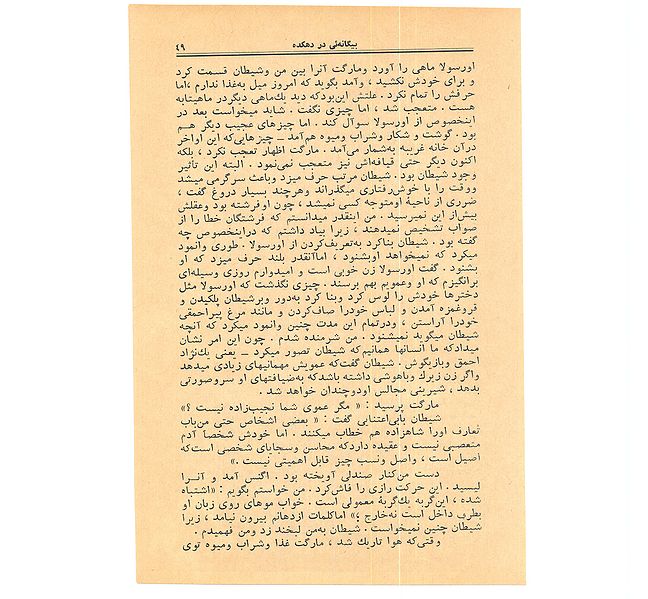 بیگانه‌ئی در دهکده ۴۹
اورسولا ماهی را آورد ومارگت آنرا بین من وشیطان قسمت کرد
و برای خودش نکشید ، وآمد بگوید که امروز میل به‌غذا ندارم ،اما
حرفش را تمام نکرد . علتش این‌بودکه دید یك‌ماهی دیگردر ماهیتابه
هست . متعجب شد ، اما چیزی نگفت . شاید میخواست بعد در
اینخصوص از اورسولا سوآل کند . اما چیزهای عجیب دیگر هــم
بود . گوشت و شکار وشراب ومیوه هم‌آمد ــ چیزهایی‌که این اواخر
درآن خانه غریبه به‌شمار می‌آمد . مارگت اظهار تعجب نکرد ، بلکه
اکنون دیگر حتی قیافه‌اش نیز متعجب نمی‌نمود . البته این تأثیر
وجود شیطان بود . شیطان مرتب حرف میزد وباعث سرگرمی میشد
ووقت را با خوش‌رفتاری میگذراند وهرچند بسیار دروغ گفت ،
ضرری از ناحیهٔ اومتوجه کسی نمیشد ، چون اوفرشته بود وعقلش
بیش‌از این نمیرسید . من اینقدر میدانستم که فرشتگان خطا را از
صواب تشخیص نمیدهند ، زیرا بیاد داشتم که دراینخصوص چه
گفته بود . شیطان بناکرد به‌تعریف‌کردن از اورسولا . طوری وانمود
میکرد که نمیخواهد اوبشنود ، اماآنقدر بلند حرف میزد که او
بشنود . گفت اورسولا زن خوبی است و امیدوارم روزی وسیله‌ای
برانگیزم که او وعمویم بهم برسند . چیزی نگذشت که اورسولا مثل
دخترها خودش را لوس کرد وبنا کرد به‌دور وبرشیطان پلکیدن و
قروغمزه آمدن و لباس خودرا صاف‌کردن و مانند مرغ پیراحمقی
خودرا آراستن ، ودرتمام این مدت چنین وانمود میکرد که آنچه
شیطان میگوید نمیشنود . من شرمنده شدم . چون این امر نشان
میدادکه ما انسانها همانیم‌که شیطان تصور میکرد ــ یعنی یك‌نژاد
احمق وبازیگوش . شیطان گفت‌که عمویش مهمانیهای زیادی میدهد
واگر زن زیرك وباهوشی داشته باشدکه به‌ضیافتهای او سروصورتی
بدهد ، شیرینی مجالس اودوچندان خواهد شد .
مارگت پرسید : « مگر عموی شما نجیب‌زاده نیست ؟»
شیطان بابی‌اعتنایی گفت : « بعضی اشخاص حتی من‌باب
تعارف اورا شاهزاده هم خطاب میکنند . اما خودش شخصاً آدم
متعصبی نیست و عقیده داردکه محاسن وسجایای شخصی است‌که
اصیل است ، واصل ونسب چیز قابل اهمیتی نیست .»
دست من‌کنار صندلی آویخته بود . اگنس آمد و آنــرا
لیسید . این حرکت رازی را فاش‌کرد . من خواستم بگویم : «اشتباه
شده ، این‌گربه یك‌گربهٔ معمولی است . خواب موهای روی زبان او
بطرف داخل است نه‌خارج ؛» اماکلمات ازدهانم بیرون نیامد ، زیرا
شیطان چنین نمیخواست . شیطان به‌من لبخند زد ومن فهمیدم .
وقتی‌که هوا تاریك شد ، مارگت غذا وشراب ومیوه توی